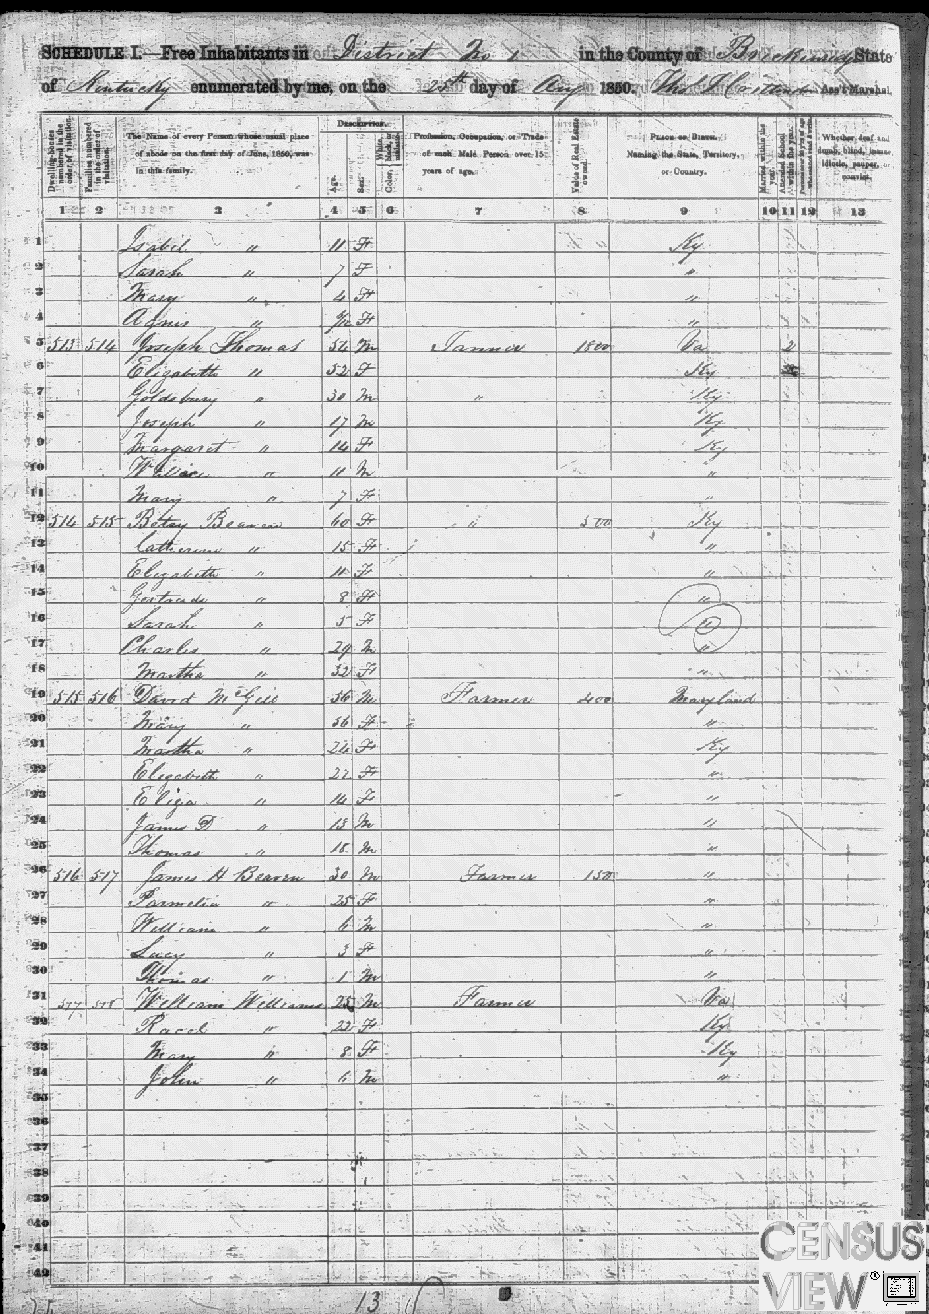 SCHEDULE I.—Free Inhabitants in District No 1 in the County of Breckinridge State
of Kentucky enumerated by me, on the 25th day of Aug 1850. Ass't Marshal.
Dwelling-houses numbered in the order of visitation.
Families numbered in the order of visitation.
The Name of every Person whose usual place of abode on the first day of June, 1850, was in this family.
Description.
Age.
Sex.
Color,
Profession, Occupation, or Trade of each Male Person over 15 years of age.
Value of Real Estate owned.
Place of Birth. Naming the State, Territory, or Country.
Married within the year.
Attended School within the year.
Whether deaf and dumb, blind, insane, idiotic, pauper, or convict.
1 2 3 4 5 6 7 8 9 10 11 12 13
1 Isabel " 11 F Ky
2 Sarah " 7 F "
3 Mary " 4 F "
4 Agnis " F "
5 513 514 Joseph Thomas 54 M Tanner 1800 Va 2
6 Elizabeth " 52 F Ky
7 Goldsbury " 30 M " Ky
8 Joseph " 17 M Ky
9 Margaret " 14 F Ky
10 " 11 M "
11 Mary " 7 F "
12 514 515 Betsy Beaven 60 F " 500 Ky
13 Catherine " 15 F "
14 Elizabeth " 11 F "
15 Gertrude " 8 F "
16 Sarah " 5 F "
17 Charles " 29 M "
18 Martha " 32 F "
19 515 516 David McGill 56 M Farmer 400 Maryland
20 Mary " 56 F "
21 Martha " 24 F Ky
22 Elizabeth " 22 F "
23 Eliza " 14 F "
24 James D " 13 M "
25 Thomas " 18 M "
26 516 517 James H Beaven 30 M Farmer 150 "
27 Parmelia " 25 F "
28 William " 6 M "
29 Lucy " 3 F "
30 Thomas " 1 M "
31 577 578 William Williams 25 M Farmer Va
32 Racel " 22 F Ky
33 Mary " 8 F Ky
John " 6 M "
35
36
37
38
39
40
41
42
13
CENSUS
VIEW®